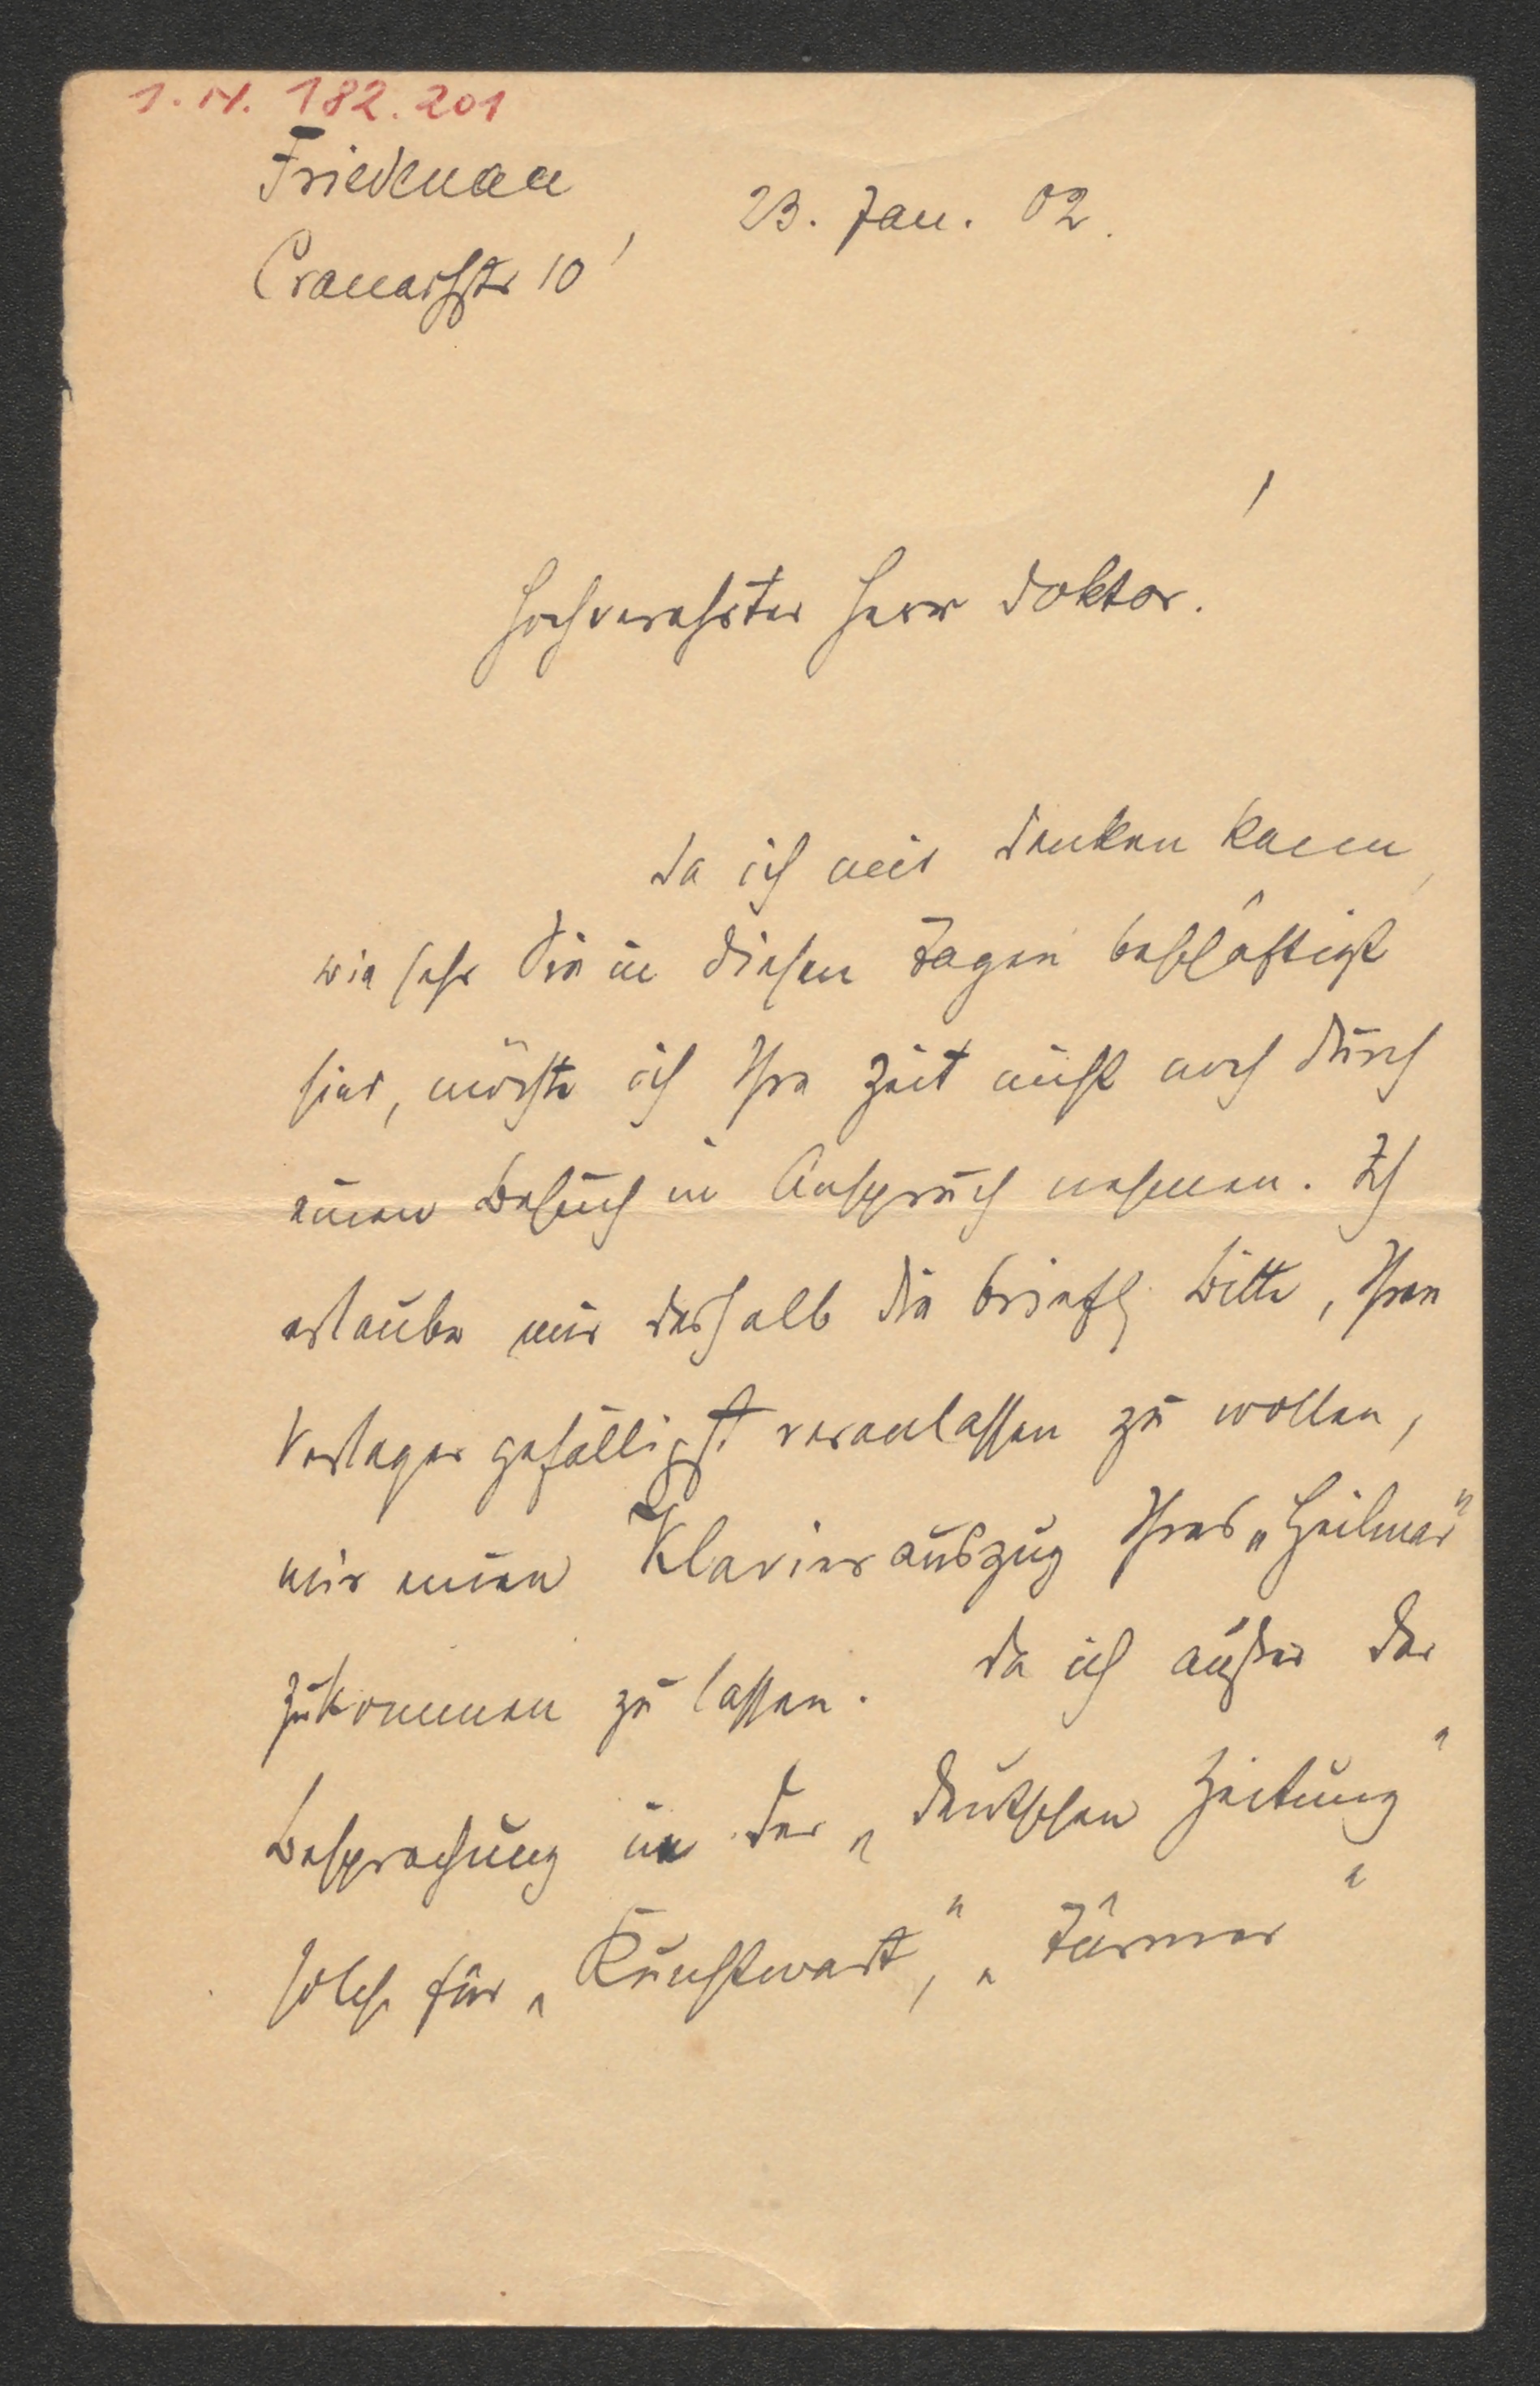 I. N. 182.201
Friedenau, 23. Jan. 02.
Cranachstr 10
Hochverehrter Herr Doktor!
Da ich mir denken kann,
wie sehr Sie in diesen Tagen beschäftigt
sind, möchte ich Ihre Zeit nicht noch durch
einen Besuch in Anspruch nehmen. Ich
erlaube mir deshalb die briefl. Bitte, Ihren
Verleger gefälligst veranlassen zu wollen,
mir einen Klavierauszug Ihres „Heilmar“
zukommen zu lassen. Da ich außer der
Besprechung in der „Deutschen Zeitung“
solche für „Kunstwart“, „Türmer“